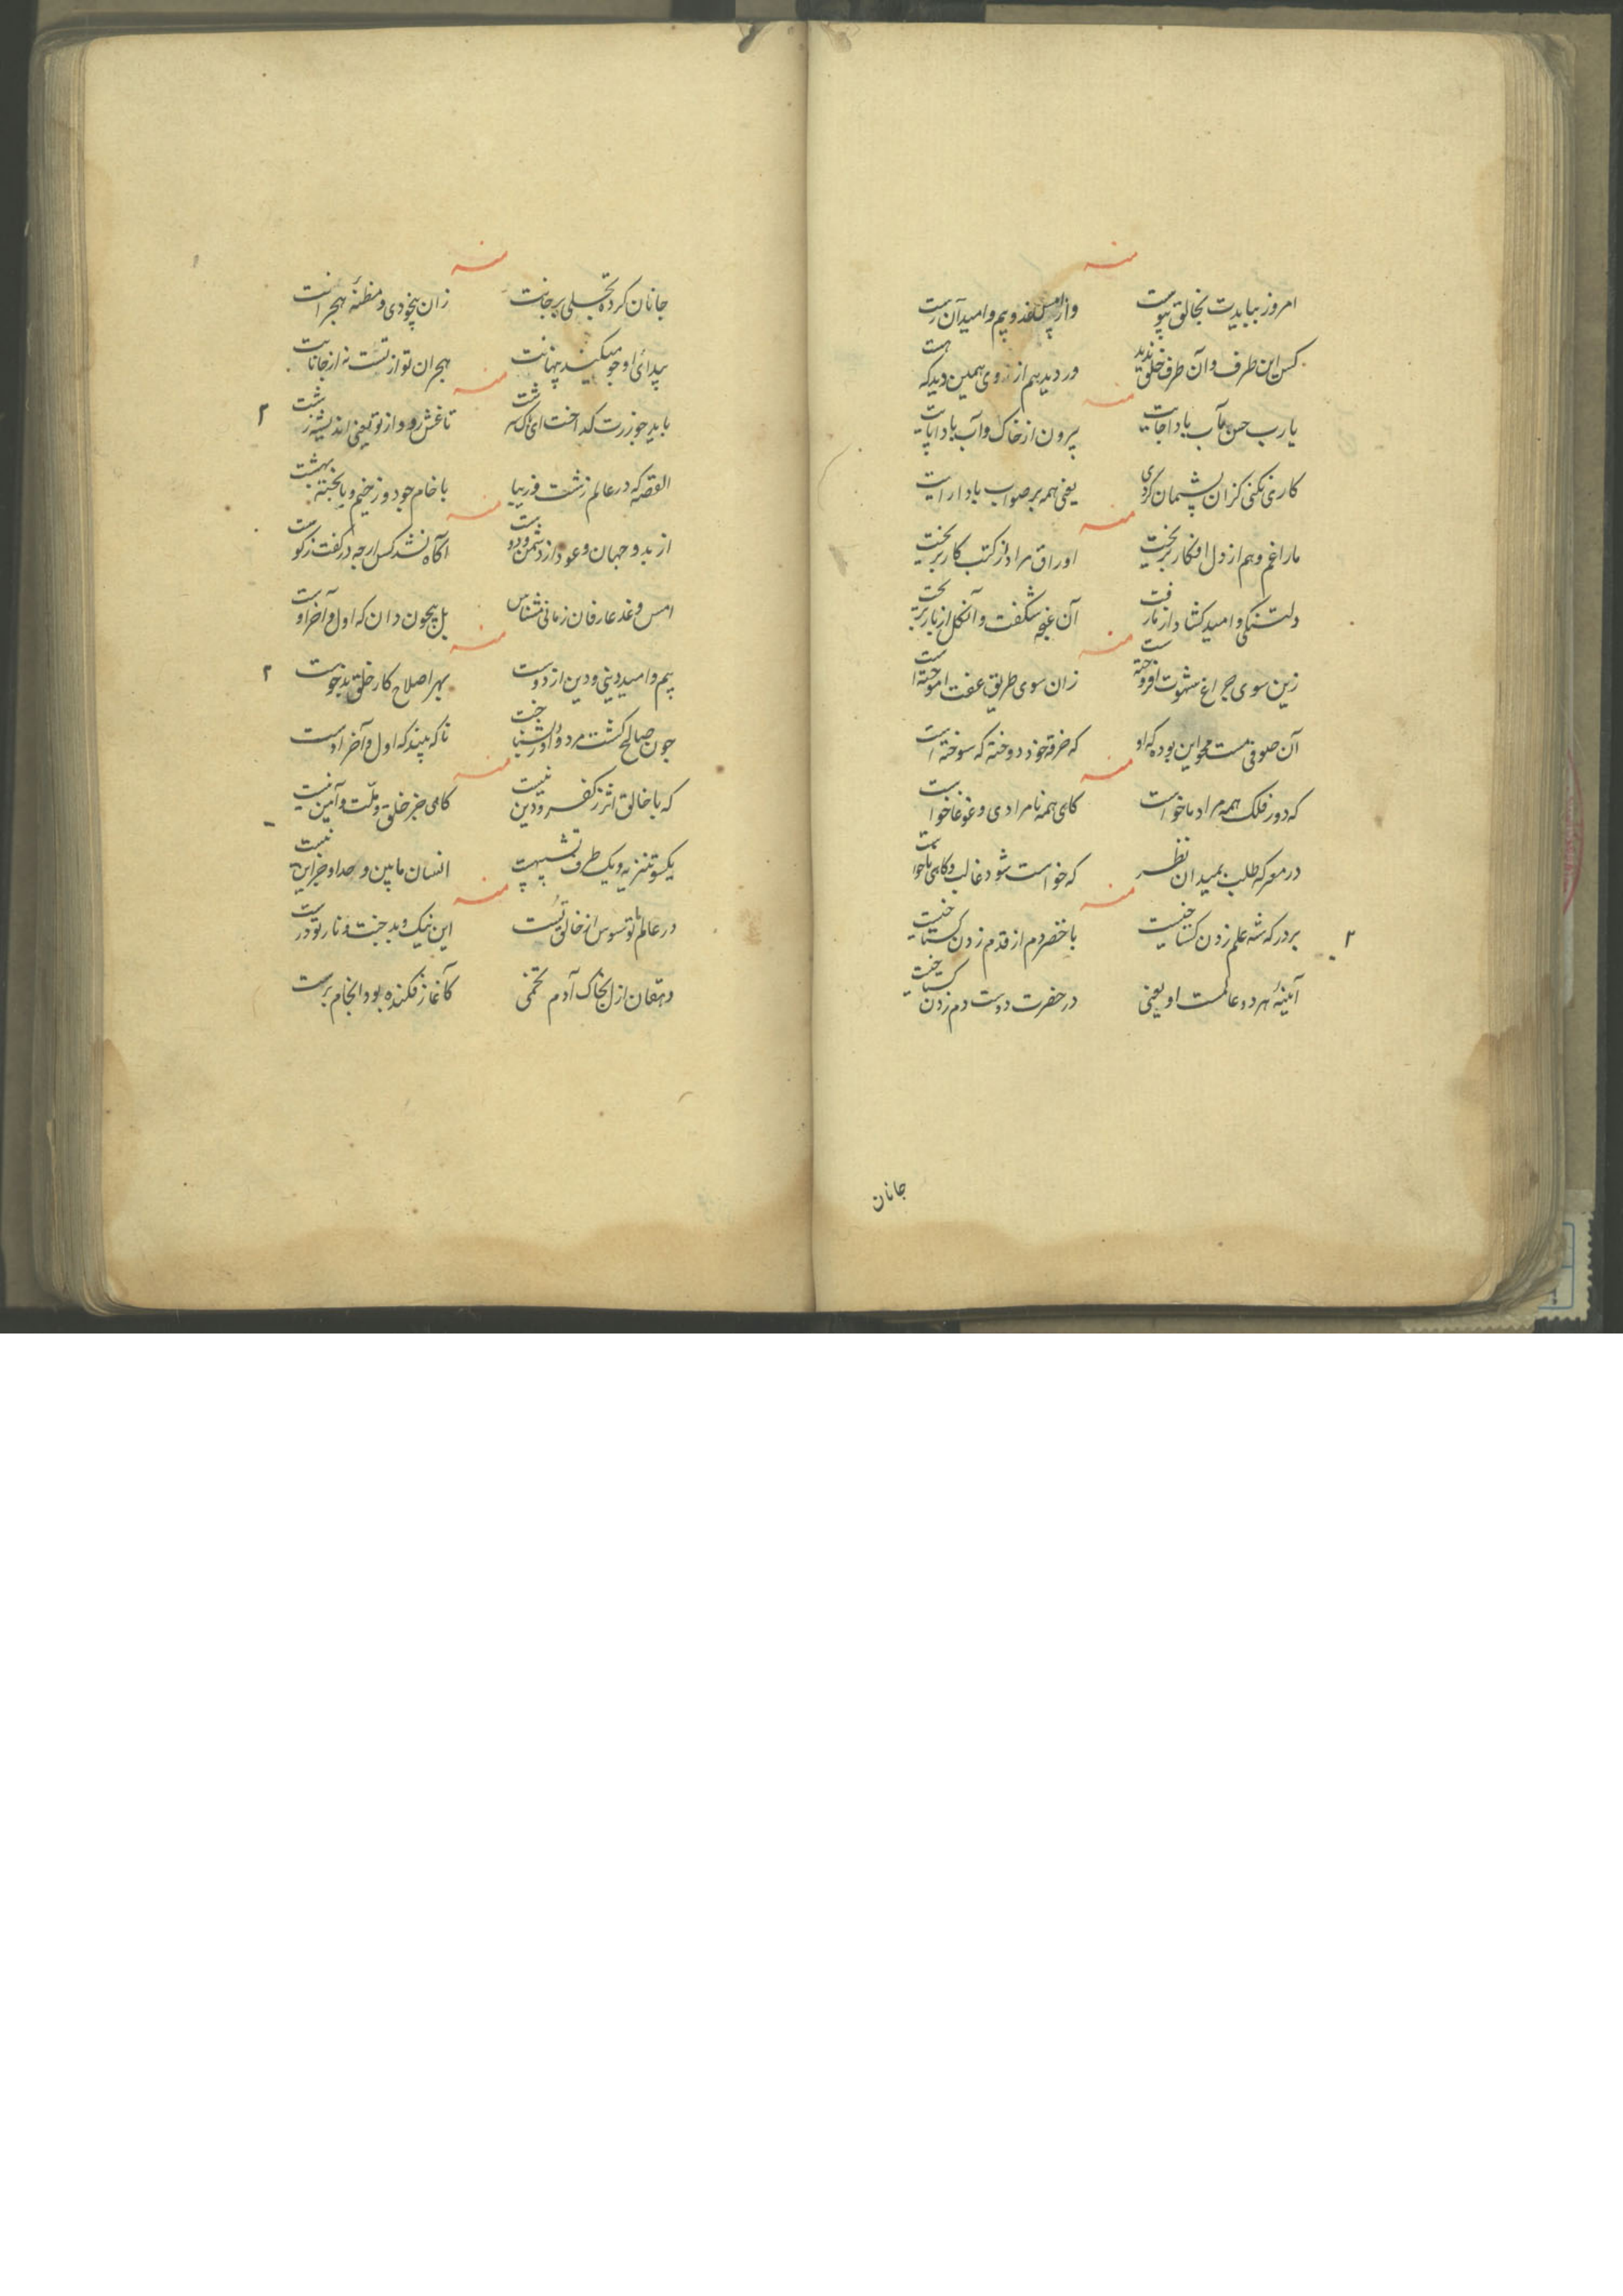 منه
امروز ببایدت بخالق پیوست
واز امس و غد و بیم و امید آن رست
کس این طرف و آن طرف خلق ندید
ور دید هم از روی همین دید که هست
منه
یا رب حسن مآب باد اجابت
بیرون از خاک و آب باد
کاری نکنی کزان پشیمان کردی
یعنی همه بر صواب باد
منه
ما را غم و هم از دل افکار بریخت
اوراق مراد از کتب کار بریخت
دلتنکی و امید کشاد از ما رفت
آن غنچه شکفت و آن کل از بار بریخت
منه
زین سوی چراغ شهوت افروخته است
زان سوی طریق عفت آموخته است
آن صوفی مست محو این بوده که او
که خرقه خود دوخته که سوخته است
منه
که دور فلک همه مراد ما خواست
کاهی همه نامرادی و غوغا خواست
در معرکه طلب بمیدان نظر
که خواست شود غالب و کاهی ما خواست
منه
بر درکه شه علم زدن کستاخیست
با خضر دم از قدم زدن کستاخیست
آیینهٔ هر دو عالمست او یعنی
در حضرت دوست دم زدن کستاخیست
جانان
منه
جانان کرده تجلی بر جانت
زان بیخودی و مظنهٔ هجرانت
پیدائی او چو میکند پنهانت
هجران تو از تست نه از جانانت
منه
باید چو زرت کداخت ای
تا غش رود از تو یعنی اندیشه زشت
القصه که در عالم زشت و زیبا
با خام چو دوزخیم و با پخته بهشت
منه
از بدو جهان و عود از دشمن و دوست
آکاه نشد کس ارچه در کفت نکوست
امس و غد عارفان زمانی مشناس
بل بیچون دان که اول و آخر اوست
منه
بیم و امید دینی و دین از دوست
بهر اصلاح کار خلق بدخوست
چون صالح کشت مرد و او را بشناخت
ناکه بیند که اول و آخر اوست
منه
که با خالق اثر ز کفر و دین نیست
کاهی جز خلق و ملت و آیین نیست
یکسو تنزیه و یک طرف تشبیهت
انسان مابین و حد او جز این نیست
منه
در عالم ما تو سوس از خالق تست
این نیک و بد و جنت و نار تو درست
دهقان ازل بخاک آدم تخمی
کاغاز فکنده بود انجام برست